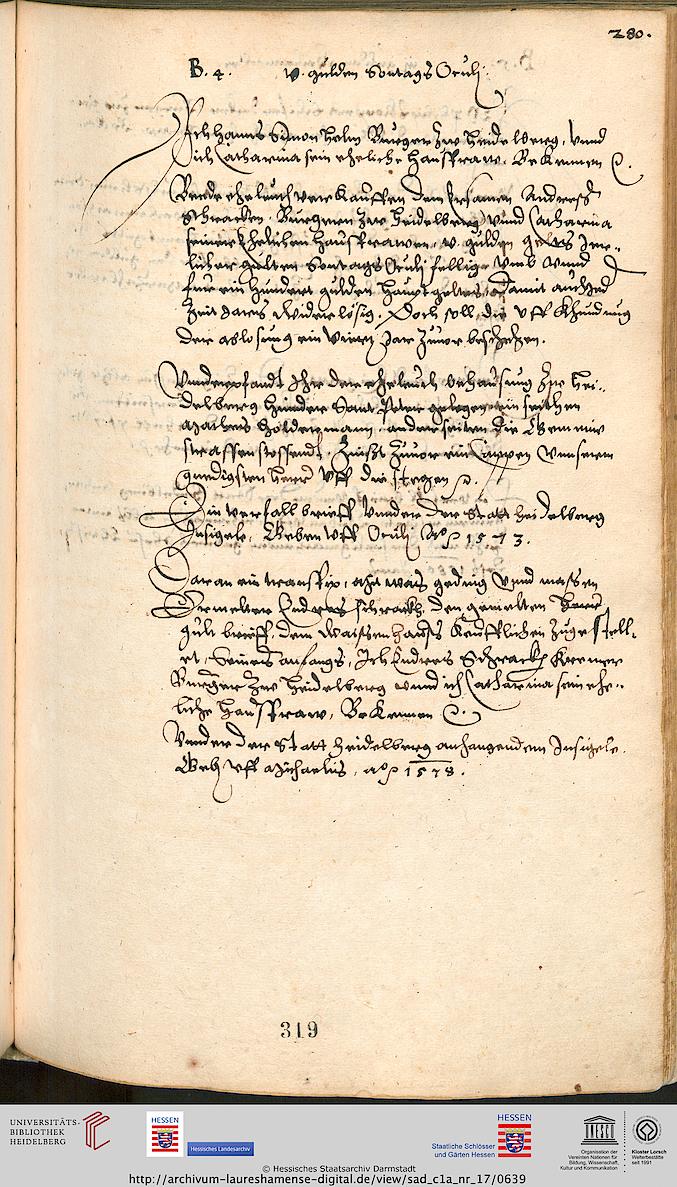 280.
B. 4. v. gulden Sontags Oculj.
Ich Hanns Simon Helm Burger zw Heidelberg, vnnd
ich Catharina sein eheliche haussfraw. Bekennen
Beede eheleuth verkauffen dem Ersamen Andress
Schwarckhen. Burgern zw Heidelberg vnnd Catharina
seiner Ehelichen haussfrawen, v. gulden gelts Jer-
licher gulten Sontags Oculj fellig, vmb vnnd
fur ein hundert gulden hauptgelts, damit auch zed
Zeit dares widerlösig, Doch soll die vff khundung
der ablosung ein viertl Jar zuuor beschehen.
Vnderpfandt Ihr der eheleuth behausung zw Hei-
delberg hinder Sant Peter gelegen, ein seithen
Matheus Holdermann, ander seiten die Gemein
strassen stossendt, Zinsst zuuor ein Cappen vnnserm
gnedigsten herrn vff die stegen
Ein versallbrieff vnnder der Statt Heidelberg
Insigele, Geben vff Oculj Aº 1573.
Daran ein transfix, mit was geding vnnd massen
Ermelter Endress Schwarckh, den gemelten
gult brieff, dem Waissenhauss keufflichen zugestell-
et, Seines anfangs, Ich Endress Schwarckh Kremer
Burger zw Heidelberg vnnd ich Catharina sein ehe-
liche haussfraw, Bekennen
Vnnder der Statt Heidelberg anhangendem Insigele.
Geb. vff Michaelis, Aº 1578.
319
UNIVERSITÄTS-
BIBLIOTHEK
HEIDELBERG
HESSEN
Hessisches Landesarchiv
Staatliche Schlösser
und Gärten Hessen
HESSEN
Organisation der
Vereinten Nationen für
Bildung, Wissenschaft,
Kultur und Kommunikation
Kloster Lorsch
Welterbestätte
seit 1991
© Hessisches Staatsarchiv Darmstadt
http://archivum-laureshamense-digital.de/view/sad_c1a_nr_17/0639